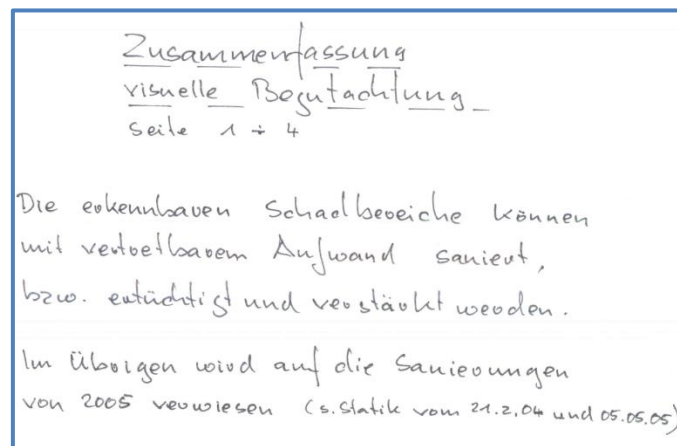 Zusammenfassung
visuelle Begutachtung
Seite 1 ÷ 4
Die erkennbaren Schadbereiche können
mit vertretbarem Aufwand saniert,
bzw. ertüchtigt und verstärkt werden.
Im Übrigen wird auf die Sanierungen
von 2005 verwiesen (s. Statik vom 21.2.04 und 05.05.05)